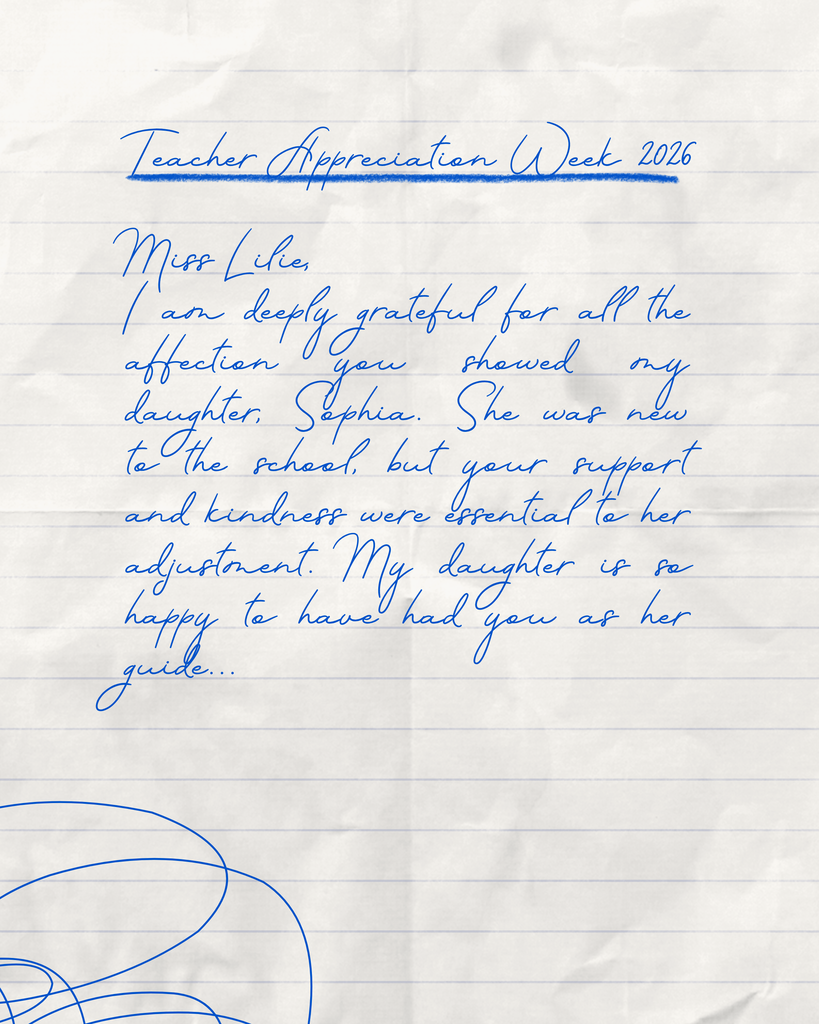 Teacher Appreciation Week 2026
Miss Lilie,
I am deeply grateful for all the
affection you showed my
daughter, Sophia. She was new
to the school, but your support
and kindness were essential to her
adjustment. My daughter is so
happy to have had you as her
guide...